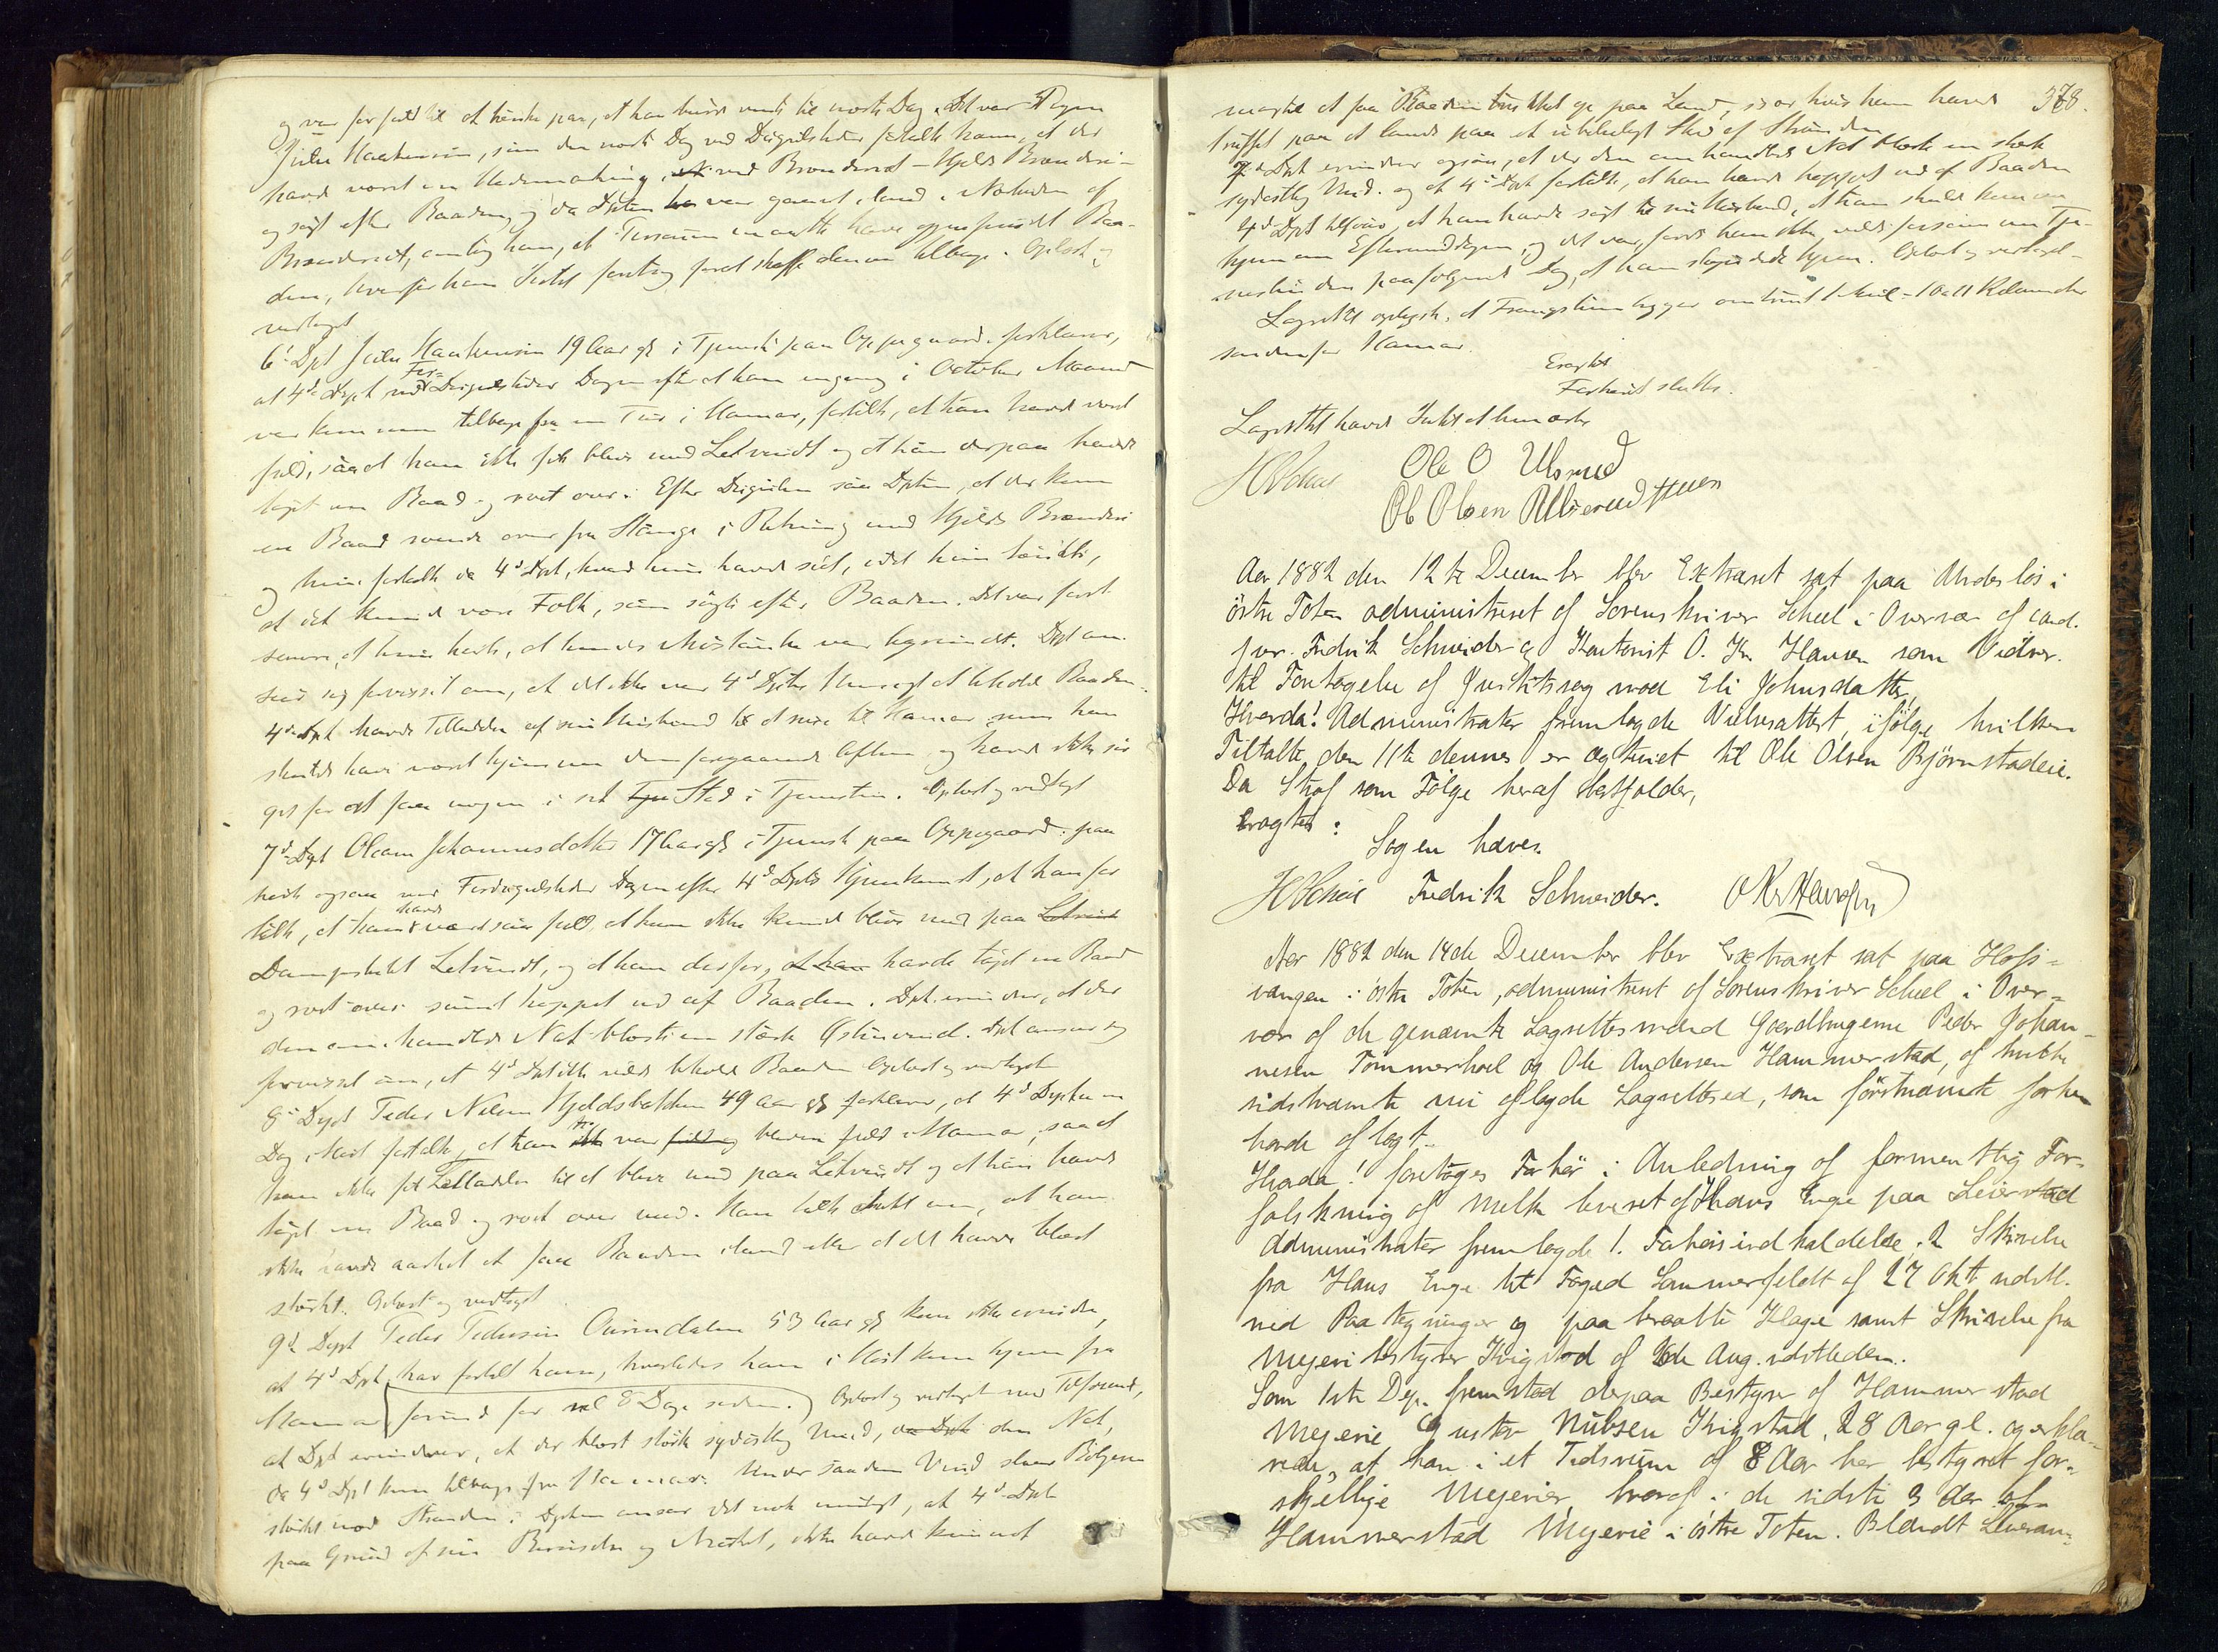 og var for fuld til at tænke paa, at han burde vente til næste Dag. Det var
Julie Haakensen, som den næste Dag ved Dugurdstider fortalte ham, at der
havde været en Hedemarking ved Brænderiet – Kjelds Brænderi –
og søgt efter Baaden, og da Dpten var gaaet i land i Nærheden af
Brænderiet, antog han, at Personen maatte have opgivet Baa-
den, hvorfor han Intet foretog for at skaffe denne tilbage. Oplæst og
vedtaget
6te Dpt Julie Haakensen 19 Aar gl i Tjeneste paa Oppegaard forklarer,
at 4de Dept ved For- Dugurdstider Dagen efter at han engang i October Maaned
var kommen tilbage fra en Tur i Hamar, fortalte, at han havde været
fuld, saa at han ikke fik blive med Letvindt og at han derpaa havde
tagt en Baad og roet over. Efter Duguren saa Dptn, at der kom
en Baad roende over fra Stange i Retning mod Kjelds Brænderi
og hun fortalte da 4de Dpt, hvad hun havde seet, idet hun tænkte,
at det kunde være Folk, som søgte efter Baaden. Det var først
senere, at hun hørte, at hendes Mistanke var begrundet. Dpt an-
seer sig forvisset om, at det ikke var 4de Dpts Hensigt at beholde Baaden.
4de Dpt havde Tilladelse af sin Husbond til at reise til Hamar men han
skulde have været hjemme den foregaaende Aften og havde ikke sør-
get for at faa nogen i sit Sted i Tjenesten. Oplæst og vedtaget
7de Dpt Oleane Johannesdatter 17 Aar gl i Tjeneste paa Oppegaard
hørte ogsaa ved Fordugurdstider Dagen efter 4de Dpts Hjemkomst, at han for-
talte, at han havde været saa fuld, at han ikke kunde blive med paa
Dampskibet Letvindt, og at han derfor havde tagt en Baad
og roet over samt hoppet ud af Baaden. Dpt. erindrer, at der
den omhandlede Nat blæste en stærk Østenvind. Dpt anseer sig
forvisset om, at 4de Dpt ikke vilde beholde Baaden. Oplæst og vedtaget
8de Dpt Peder Nilsen Kjeldsbakken 49 Aar gl forklarer, at 4de Dpten en
Dag i Høst fortalte, at han var bleven fuld i Hamar, saa at
han ikke fik Tilladelse til at blive med paa Letvindt og at han havde
tagt en Baad og roet over med. Han talte intet om, at han
ikke havde aarket at faa Baaden iland eller at det havde blæst
stærkt. Oplæst og vedtaget
9de Dept Peder Pedersen 53 Aar gl kan ikke erindre,
at 4de Dpt har fortalt ham, hvorledes han i Høst kom hjem fra
Hamar forend for vel 8 Dage siden. Oplæst og vedtaget med Tilføiende,
at Dpt erindrer, at der blæste stærk sydøstlig Vind, den Nat,
da 4de Dpt kom tilbage fra Hamar. Under saadan Vind slaar Bølgerne
stærkt mod Stranden. Dpten anseer det nok muligt, at 4de Dpt
paa Grund af sin Beruselse og Mathed, ikke havde kunnet
378.
magte at faa Baaden trukket op paa Land, især hvis han havde
truffet paa at lande paa et ubeleiligt Sted af Stranden
Dpt erindrer ogsaa, at der den omhandlede Nat blæste en stærk
sydøstlig Vind og at 4de Dpt fortalte, at han havde hoppet ud af Baaden
4de Dpt tilføier, at han havde sagt til sin Husbond, at han skulde komme
hjem om Eftermiddagen, og det var fordi han ikke vilde forsømme Tje-
nesten den paafølgende Dag, at han skyndte hjem. Oplæst og vedtaget
Lagrettet oplyste, at Frangstuen ligger omtrent 1 Mil = 10 a 11 Kilometer
søndenfor Hamar.
Eragtet
Forhøret sluttes.
Lagrettet havde Intet at bemærke
HScheel Ole O Ulsrud
Ole Olsen
Aar 1882 den 12te December blev Extraret sat paa Anderløs i
östre Toten administreret af Sorenskriver Scheel i Overvær af cand.
jur. Fredrik Schneider og Kontorist O. Kr. Hansen som Vidner.
til Foretagelse af Justitssag mod Eli Johnsdatter,
Hvorda! Administrator fremlagde Vielsesattest, ifölge hvilken
Tiltalte den 11te dennes er ægteviet til Ole Olsen Björnstadeie.
Da Straf som Fölge heraf bortfalder,
eragtes:
Sagen hæves.
HScheel Fredrik Schneider. OKrHansen
Aar 1882 den 14de December blev Extraret sat paa Hofs-
vangen i östre Toten, administreret af Sorenskriver Scheel i Over-
vær af de opnævnte Lagrettesmænd Gaardbrugerne Peder Johan-
nesen Tömmerhoel og Ole Andersen Hammerstad, af hvilke
sidstnævnte nu aflagde Lagrettesed, som förstnævnte forhen
havde aflagt.
Hvorda! foretoges Forhör i Anledning af formentlig For-
falskning af Melk leveret af Hans Enge paa Leierstad
Administrator fremlagde 1. Forhörsindkaldelse. 2 Skrivelse
fra Hans Enge til Foged Sommerfeldt af 27 Okt. sidstl.
med Paategninger og paaberaabte Klage samt Skrivelse fra
Meyeribestyrer Kvigstad af 2de Aug. sidstleden.
Som 1ste Dep. fremstod derpaa Bestyrer af Hammerstad
Meyerie Gustav Nilsen Kvigstad, 28 Aar gl. og erklæ-
rede, at han i et Tidsrum af 8 Aar har bestyret for-
skjellige Meyerier, hvoraf i de sidste 3 Aar
Hammerstad Meyerie i östre Toten. Blandt Leveran-